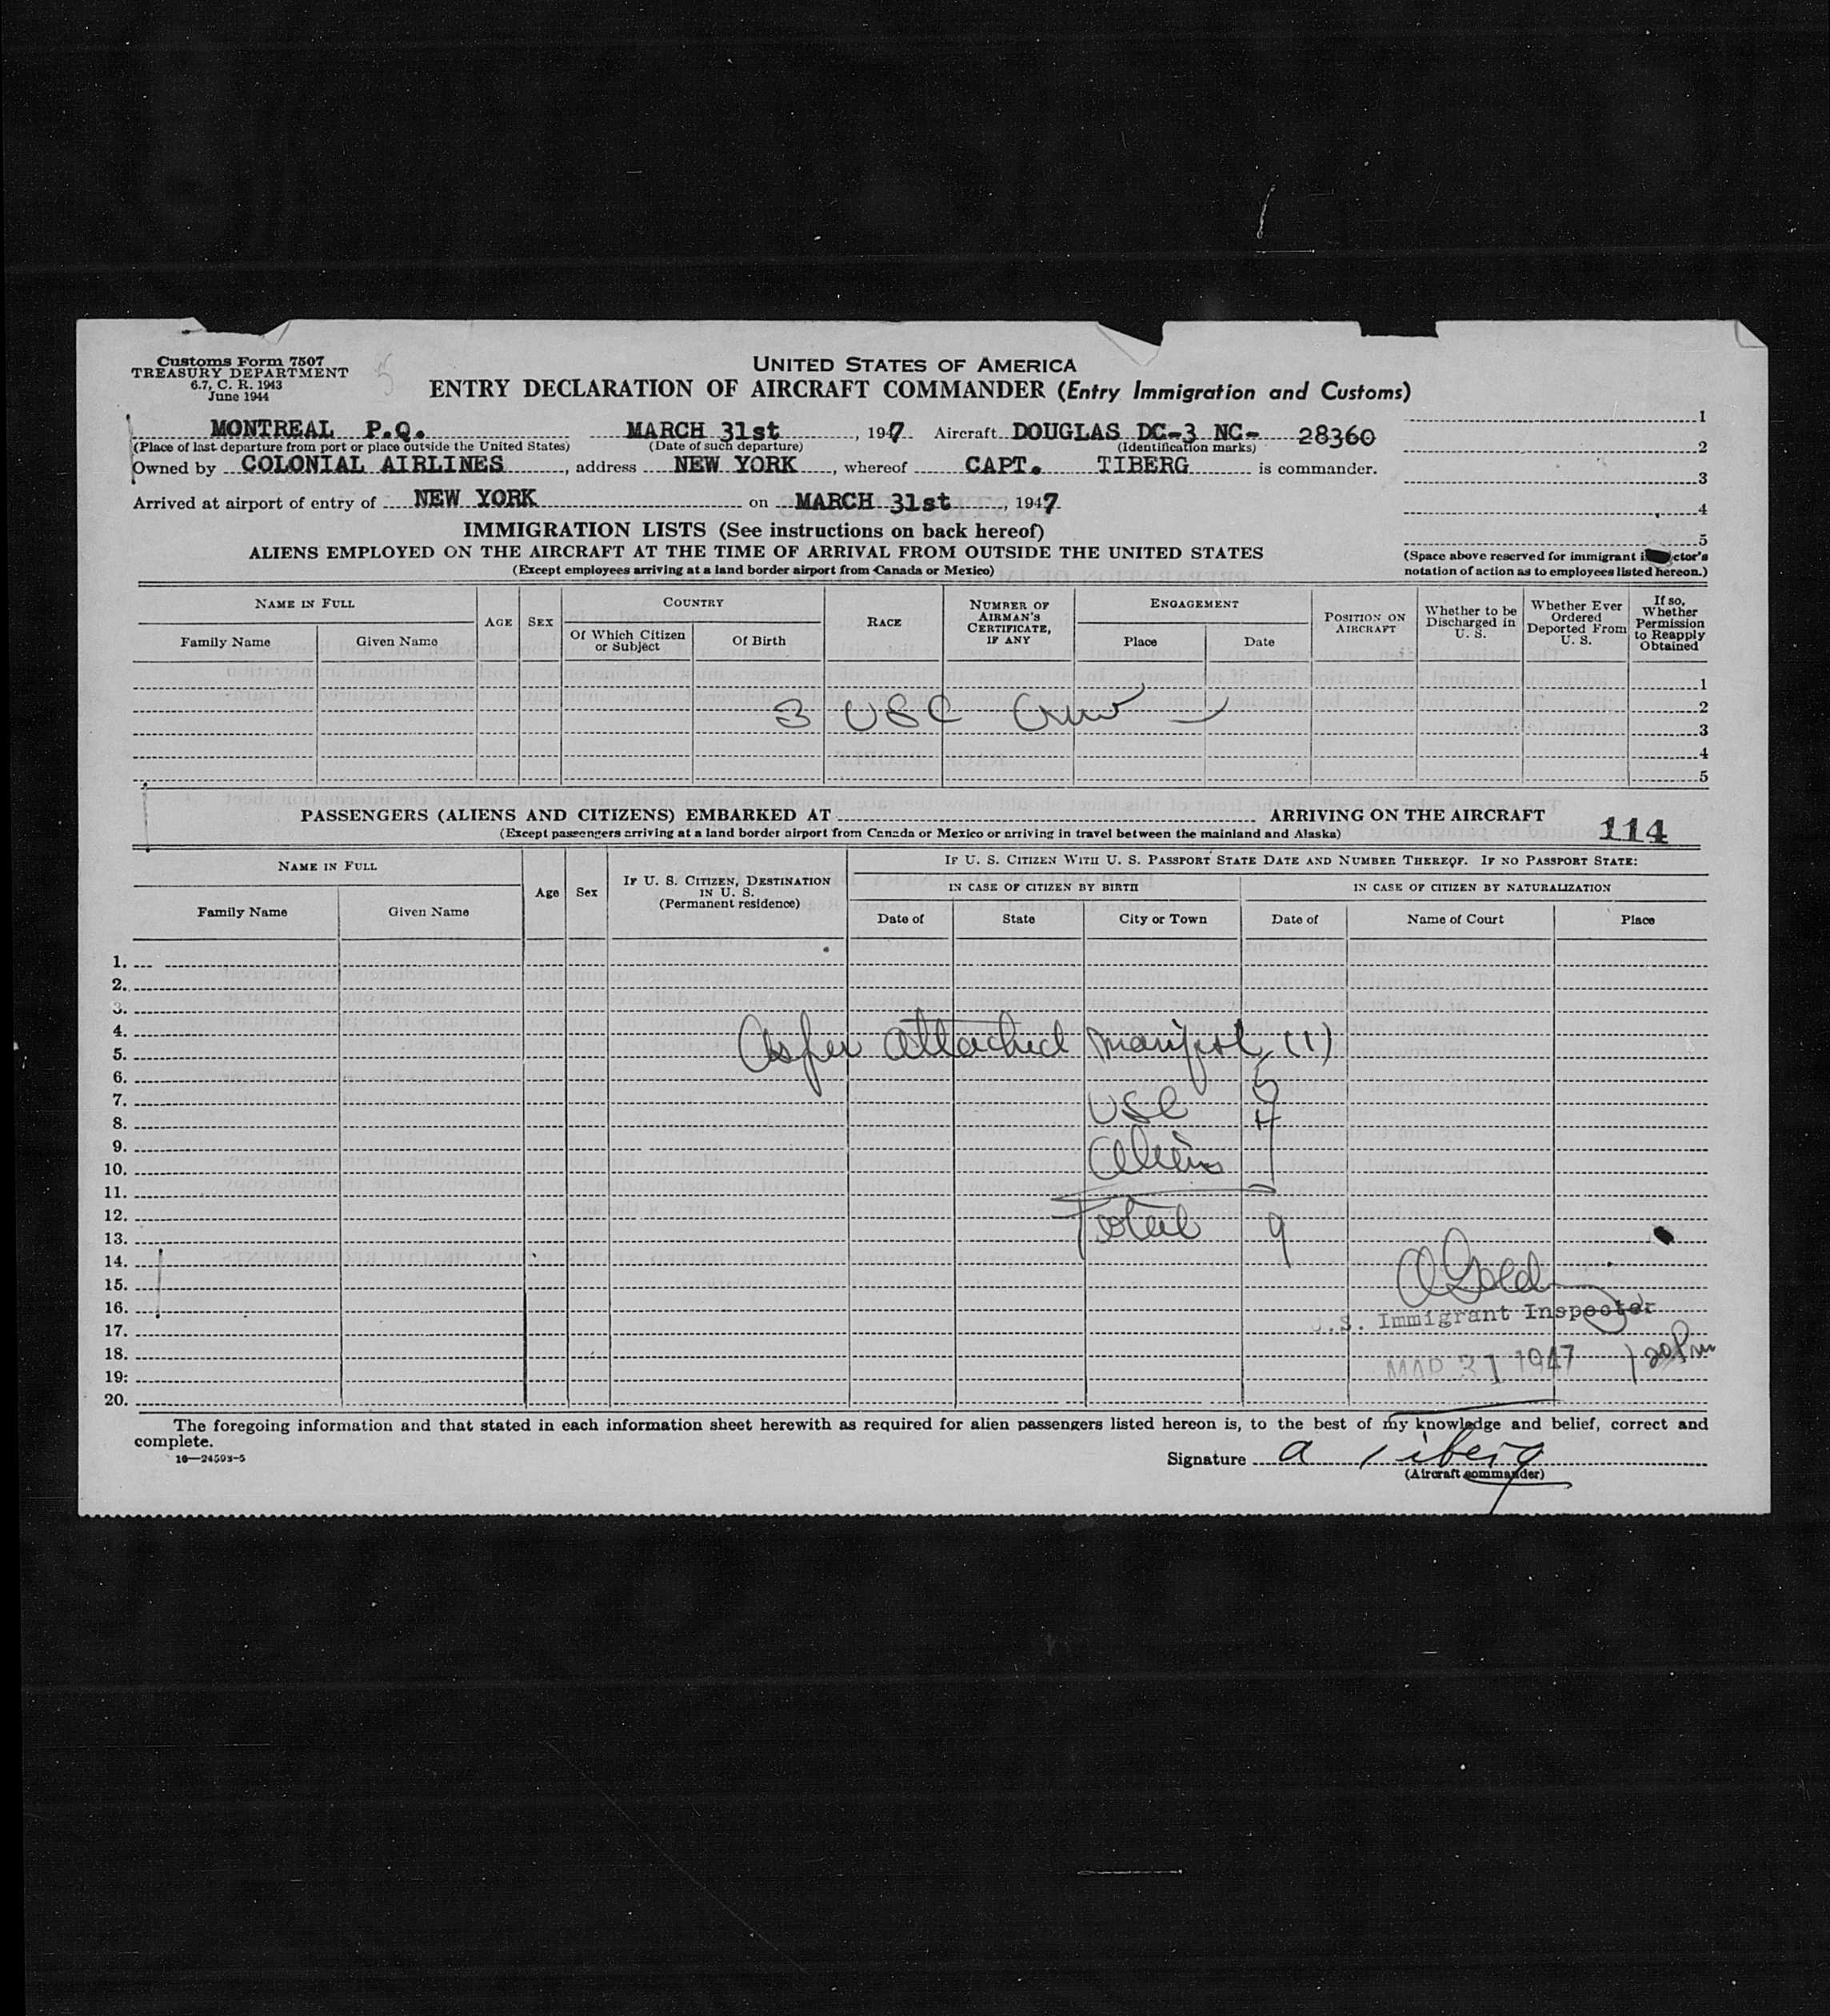 Customs Form 7507
TREASURY DEPARTMENT
6.7, C. R. 1943
June 1944
5
UNITED STATES OF AMERICA
ENTRY DECLARATION OF AIRCRAFT COMMANDER (Entry Immigration and Customs)
MONTREAL P.Q. MARCH 31st, 1947 Aircraft DOUGLAS DC-3 NC- 28360
(Place of last departure from port or place outside the United States) (Date of such departure) (Identification marks)
Owned by COLONIAL AIRLINES, address NEW YORK, whereof CAPT. TIBERG is commander.
Arrived at airport of entry of NEW YORK on MARCH 31st, 1947
1
2
3
4
5
(Space above reserved for immigrant i ctor's
notation of action as to employees listed hereon.)
IMMIGRATION LISTS (See instructions on back hereof)
ALIENS EMPLOYED ON THE AIRCRAFT AT THE TIME OF ARRIVAL FROM OUTSIDE THE UNITED STATES
(Except employees arriving at a land border airport from Canada or Mexico)
NAME IN FULL
Family Name Given Name
AGE SEX
COUNTRY
Of Which Citizen or Subject Of Birth
RACE
NUMBER OF AIRMAN'S CERTIFICATE, IF ANY
ENGAGEMENT
Place Date
POSITION ON AIRCRAFT
Whether to be Discharged in U. S.
Whether Ever Ordered Deported From U. S.
If so, Whether Permission to Reapply Obtained
1
3 USC Crew 2
3
4
5
PASSENGERS (ALIENS AND CITIZENS) EMBARKED AT ARRIVING ON THE AIRCRAFT
(Except passengers arriving at a land border airport from Canada or Mexico or arriving in travel between the mainland and Alaska)
114
NAME IN FULL
Family Name Given Name
Age Sex
IF U. S. CITIZEN, DESTINATION IN U. S.
(Permanent residence)
IF U. S. CITIZEN WITH U. S. PASSPORT STATE DATE AND NUMBER THEREOF. IF NO PASSPORT STATE:
IN CASE OF CITIZEN BY BIRTH IN CASE OF CITIZEN BY NATURALIZATION
Date of State City or Town Date of Name of Court Place
1.
2.
3.
4.
5. As per attached manifest (1)
6.
7. USC 5
8. 4
9.
10. Aliens
11.
12.
13. Total 9
14.
15. A Gold
16. U.S. Immigrant Inspector
17.
18. MAR 31 1947 120 Pm
19.
20.
The foregoing information and that stated in each information sheet herewith as required for alien passengers listed hereon is, to the best of my knowledge and belief, correct and
complete.
16—24593-5
Signature A Tiberg
(Aircraft commander)